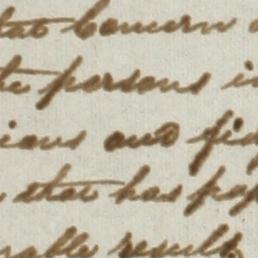 that concern
the persons i
ious and fid
that has pa
rable results